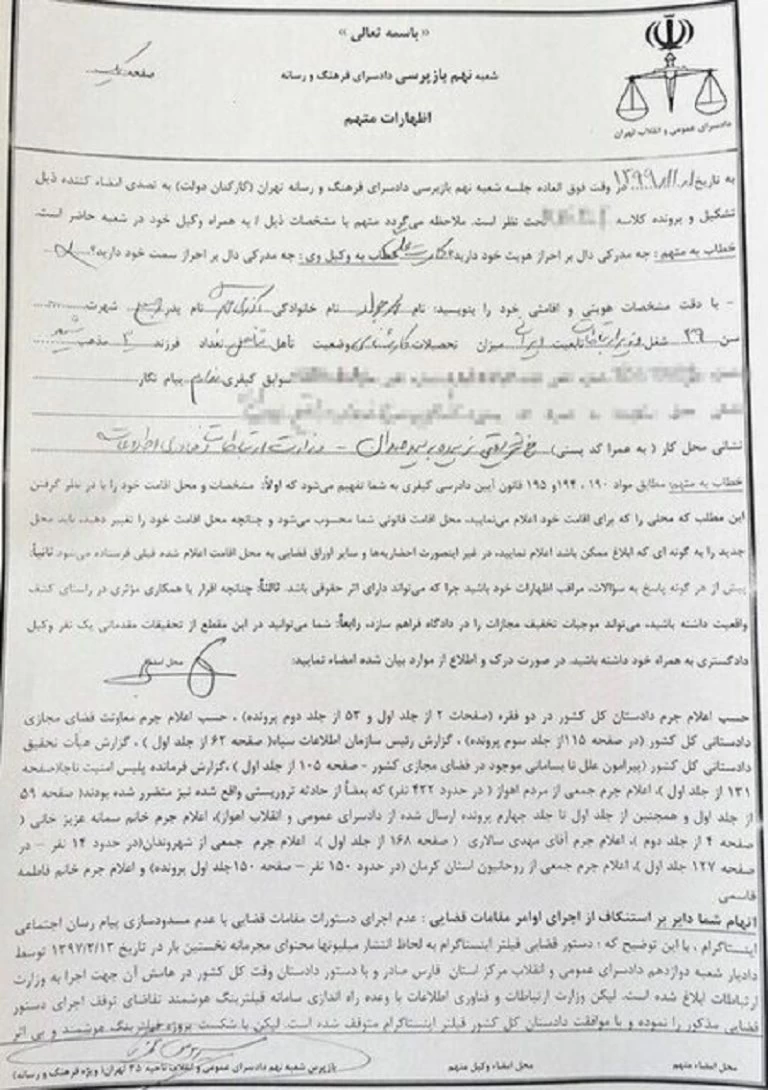 « باسمه تعالی »
صفحه یک
شعبه نهم بازپرسی دادسرای فرهنگ و رسانه
اظهارات متهم
دادسرای عمومی و انقلاب تهران
به تاریخ ۱۳۹۹/۱۱/۰۱ در وقت فوق العاده جلسه شعبه نهم بازپرسی دادسرای فرهنگ و رسانه تهران (کارکنان دولت) به تصدی امضاء کننده ذیل
تشکیل و پرونده کلاسه تحت نظر است. ملاحظه می‌گردد متهم با مشخصات ذیل / به همراه وکیل خود در شعبه حاضر است.
خطاب به متهم: چه مدرکی دال بر احراز هویت خود دارید؟ کارت ملی خطاب به وکیل وی: چه مدرکی دال بر احراز سمت خود دارید؟
- با دقت مشخصات هویتی و اقامتی خود را بنویسید: نام محمدجواد نام خانوادگی آذری جهرمی نام پدر شهرت
سن ۳۹ شغل وزیر ارتباطات تابعیت ایرانی میزان تحصیلات کارشناسی وضعیت تأهل متاهل تعداد فرزند ۳ مذهب شیعه
سوابق کیفری ندارم پیام نگار
نشانی محل کار ( به همرا کد پستی) خ شریعتی نرسیده به پل سیدخندان - وزارت ارتباطات و فناوری اطلاعات
خطاب به متهم: مطابق مواد ۱۹۰ ، ۱۹۴ و ۱۹۵ قانون آیین دادرسی کیفری به شما تفهیم می‌شود که اولاً: مشخصات و محل اقامت خود را با در نظر گرفتن
این مطلب که محلی را که برای اقامت خود اعلام می‌نمایید، محل اقامت قانونی شما محسوب می‌شود و چنانچه محل اقامت خود را تغییر دهید، باید محل
جدید را به گونه ای که ابلاغ ممکن باشد اعلام نمایید، در غیر اینصورت احضاریه‌ها و سایر اوراق قضایی به محل اقامت اعلام شده قبلی فرستاده می‌شود ثانیاً:
پیش از هر گونه پاسخ به سؤالات، مراقب اظهارات خود باشید چرا که می‌تواند دارای اثر حقوقی باشد. ثالثاً: چنانچه اقرار یا همکاری مؤثری در راستای کشف
واقعیت داشته باشید، می‌تواند موجبات تخفیف مجازات را در دادگاه فراهم سازد، رابعاً: شما می‌توانید در این مقطع از تحقیقات مقدماتی یک نفر وکیل
دادگستری به همراه خود داشته باشید. در صورت درک و اطلاع از موارد بیان شده امضاء نمایید: محل امضاء
حسب اعلام جرم دادستان کل کشور در دو فقره (صفحات ۲ از جلد اول و ۵۳ از جلد دوم پرونده) ، حسب اعلام جرم معاونت فضای مجازی
دادستانی کل کشور (در صفحه ۱۱۵از جلد سوم پرونده) ، گزارش رئیس سازمان اطلاعات سپاه( صفحه ۶۲ از جلد اول ) ، گزارش هیأت تحقیق
دادستانی کل کشور (پیرامون علل نابسامانی موجود در فضای مجازی کشور - صفحه ۱۰۵ از جلد اول ) ،گزارش فرمانده پلیس امنیت ناجا(صفحه
۱۳۱ از جلد اول)، اعلام جرم جمعی از مردم اهواز ( در حدود ۴۲۲ نفر) که بعضاً از حادثه تروریستی واقع شده نیز متضرر شده بودند( صفحه ۵۹
از جلد اول و همچنین از جلد اول تا جلد چهارم پرونده ارسال شده از دادسرای عمومی و انقلاب اهواز)، اعلام جرم خانم سمانه عزیز خانی (
صفحه ۴ از جلد دوم )، اعلام جرم آقای مهدی سالاری ( صفحه ۱۶۸ از جلد اول )، اعلام جرم جمعی از شهروندان(در حدود ۱۴ نفر - در
صفحه ۱۲۷ جلد اول)، اعلام جرم جمعی از روحانیون استان کرمان (در حدود ۱۵۰ نفر - صفحه ۱۵۰جلد اول پرونده) و اعلام جرم خانم فاطمه
قاسمی
اتهام شما دایر بر استنکاف از اجرای اوامر مقامات قضایی : عدم اجرای دستورات مقامات قضایی با عدم مسدودسازی پیام رسان اجتماعی
اینستاگرام ، با این توضیح که : دستور قضایی فیلتر اینستاگرام به لحاظ انتشار میلیونها محتوای مجرمانه نخستین بار در تاریخ ۱۳۹۷/۲/۱۳ توسط
دادیار شعبه دوازدهم دادسرای عمومی و انقلاب مرکز استان فارس صادر و با دستور دادستان وقت کل کشور در هامش آن جهت اجرا به وزارت
ارتباطات ابلاغ شده است. لیکن وزارت ارتباطات و فناوری اطلاعات با وعده راه اندازی سامانه فیلترینگ هوشمند تقاضای توقف اجرای دستور
قضایی مذکور را نموده و با موافقت دادستان کل کشور فیلتر اینستاگرام متوقف شده است. لیکن با شکست پروژه فیلترینگ هوشمند و بی اثر
محل امضاء متهم
محل امضاء وکیل متهم
بازپرس شعبه نهم دادسرای عمومی و انقلاب ناحیه ۳۵ تهران( ویژه فرهنگ و رسانه)